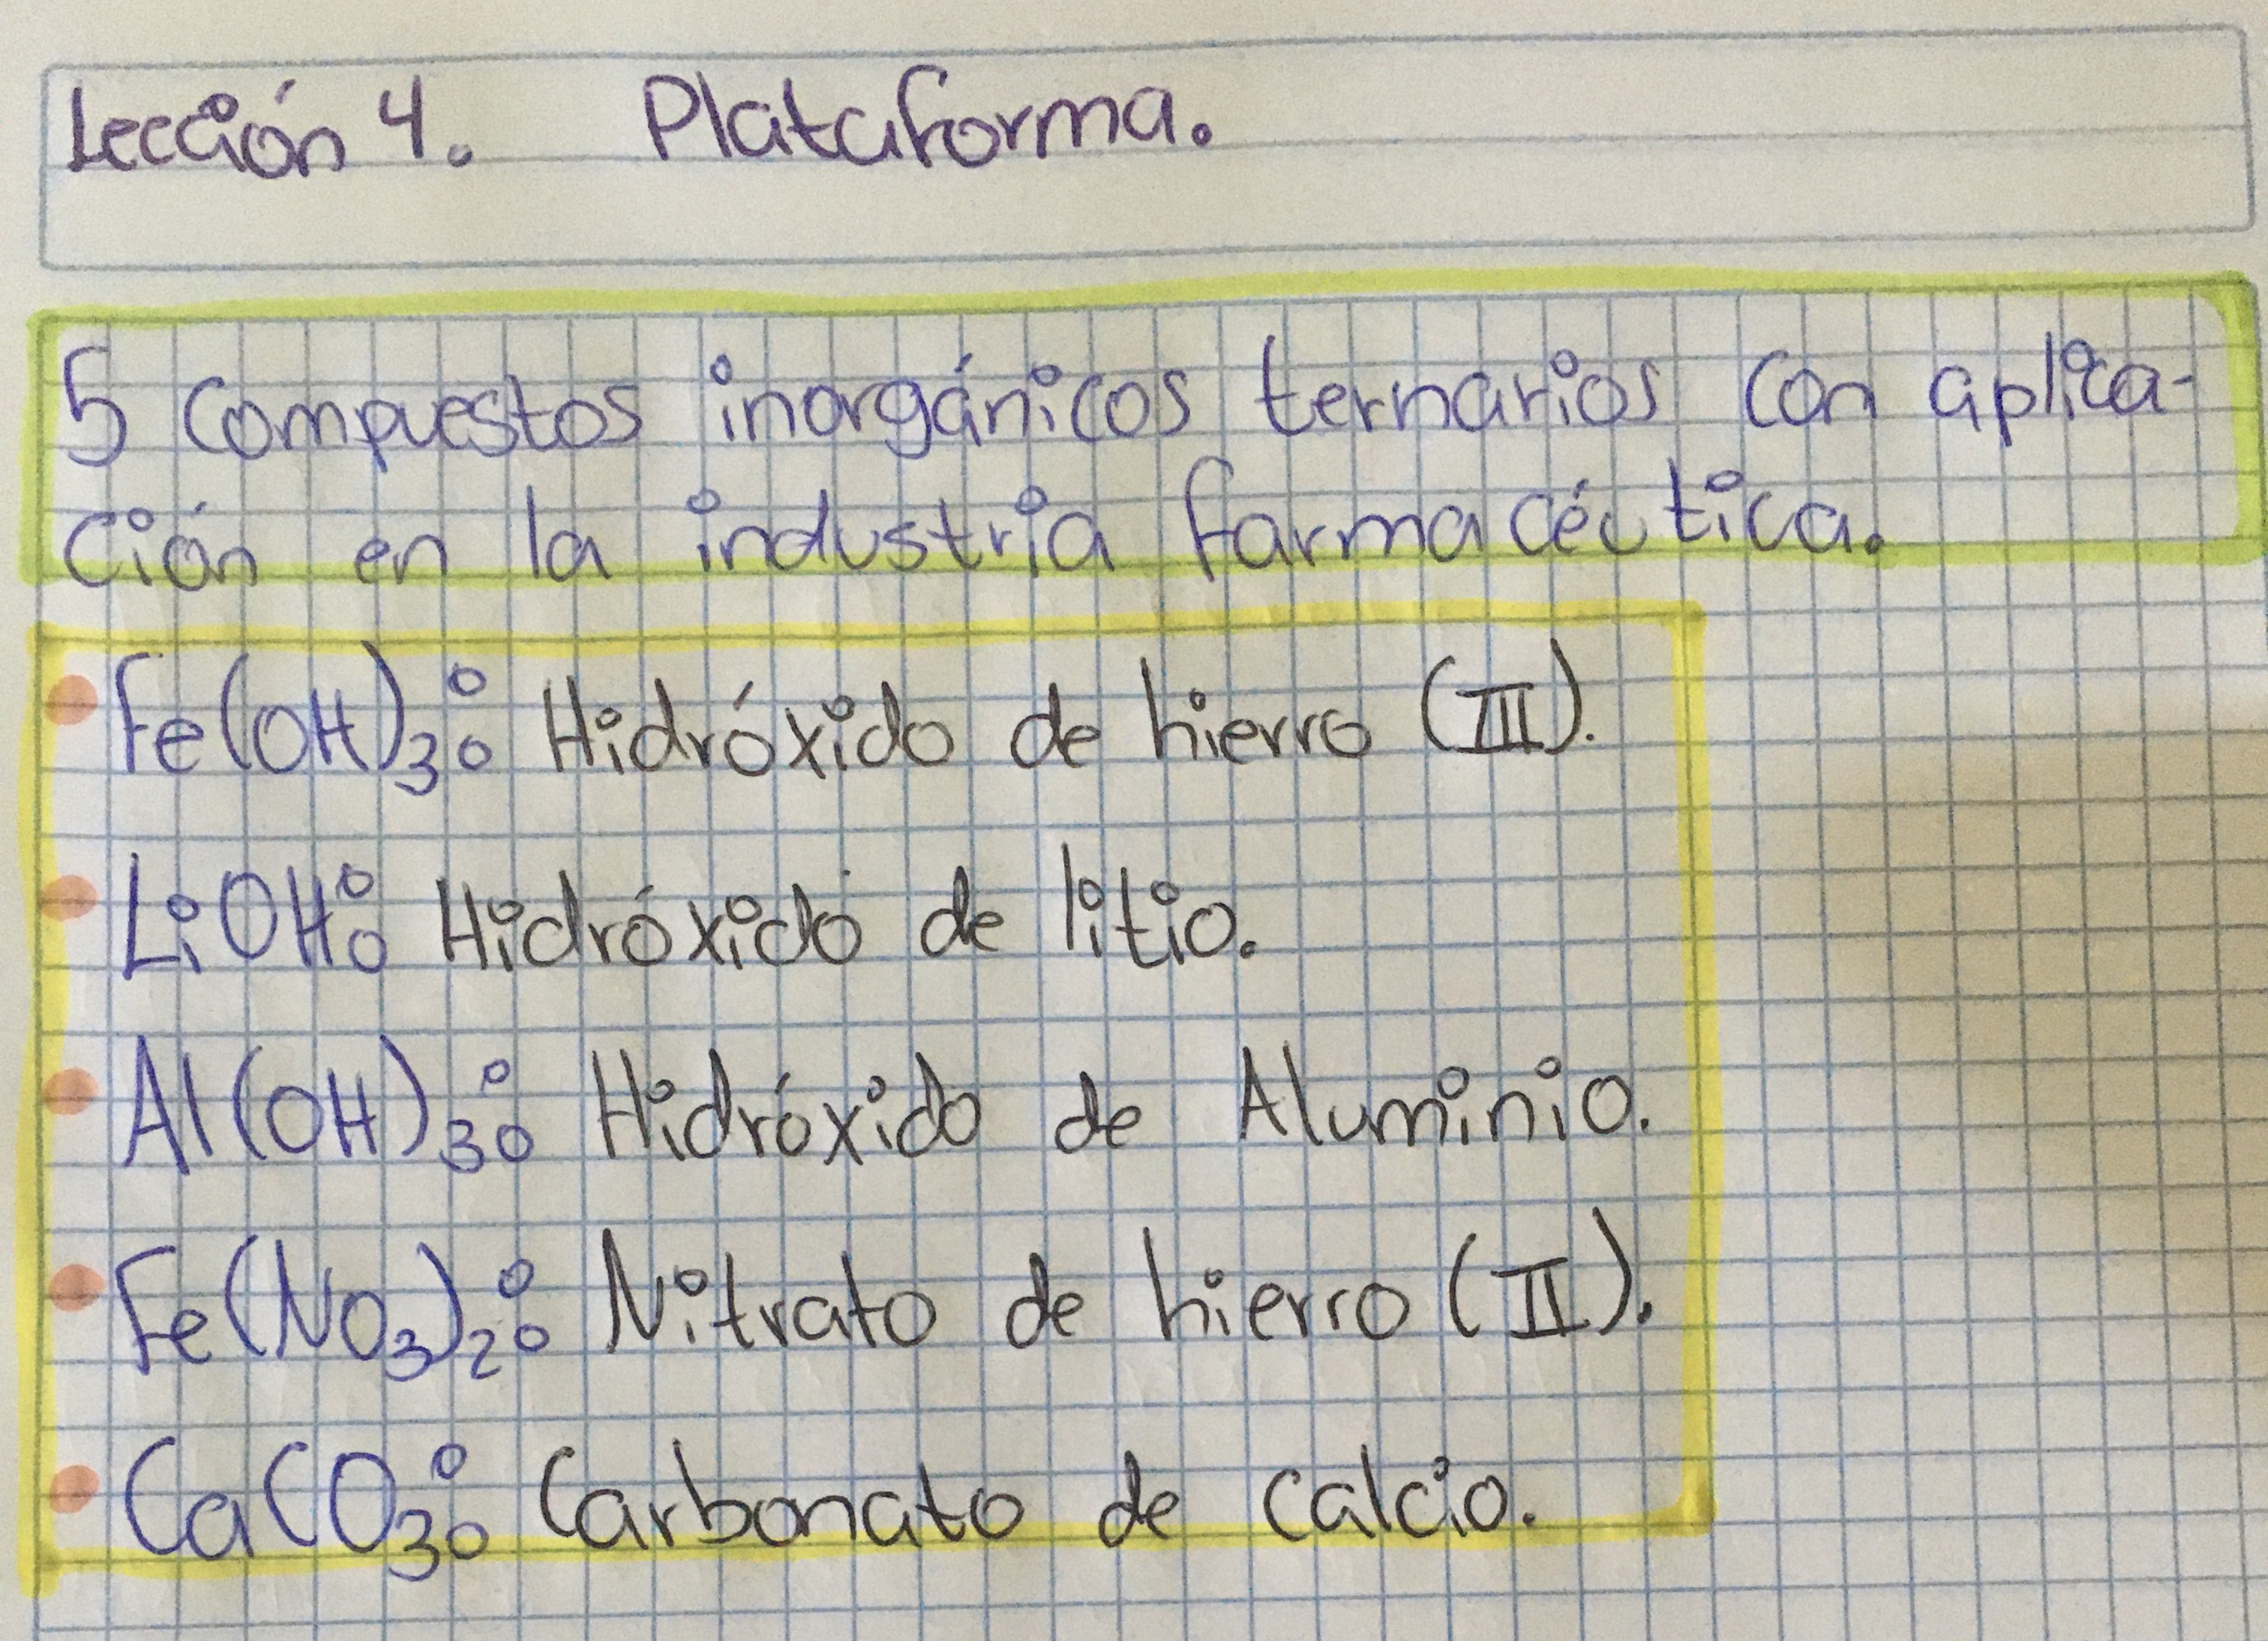 Lección 4. Plataforma.
5 Compuestos inorgánicos ternarios con aplica-
ción en la industria farmacéutica.
Fe(OH)₃: Hidróxido de hierro (III).
LiOH: Hidróxido de litio.
Al(OH)₃: Hidróxido de Aluminio.
Fe(NO₃)₂: Nitrato de hierro (II).
CaCO₃: Carbonato de calcio.